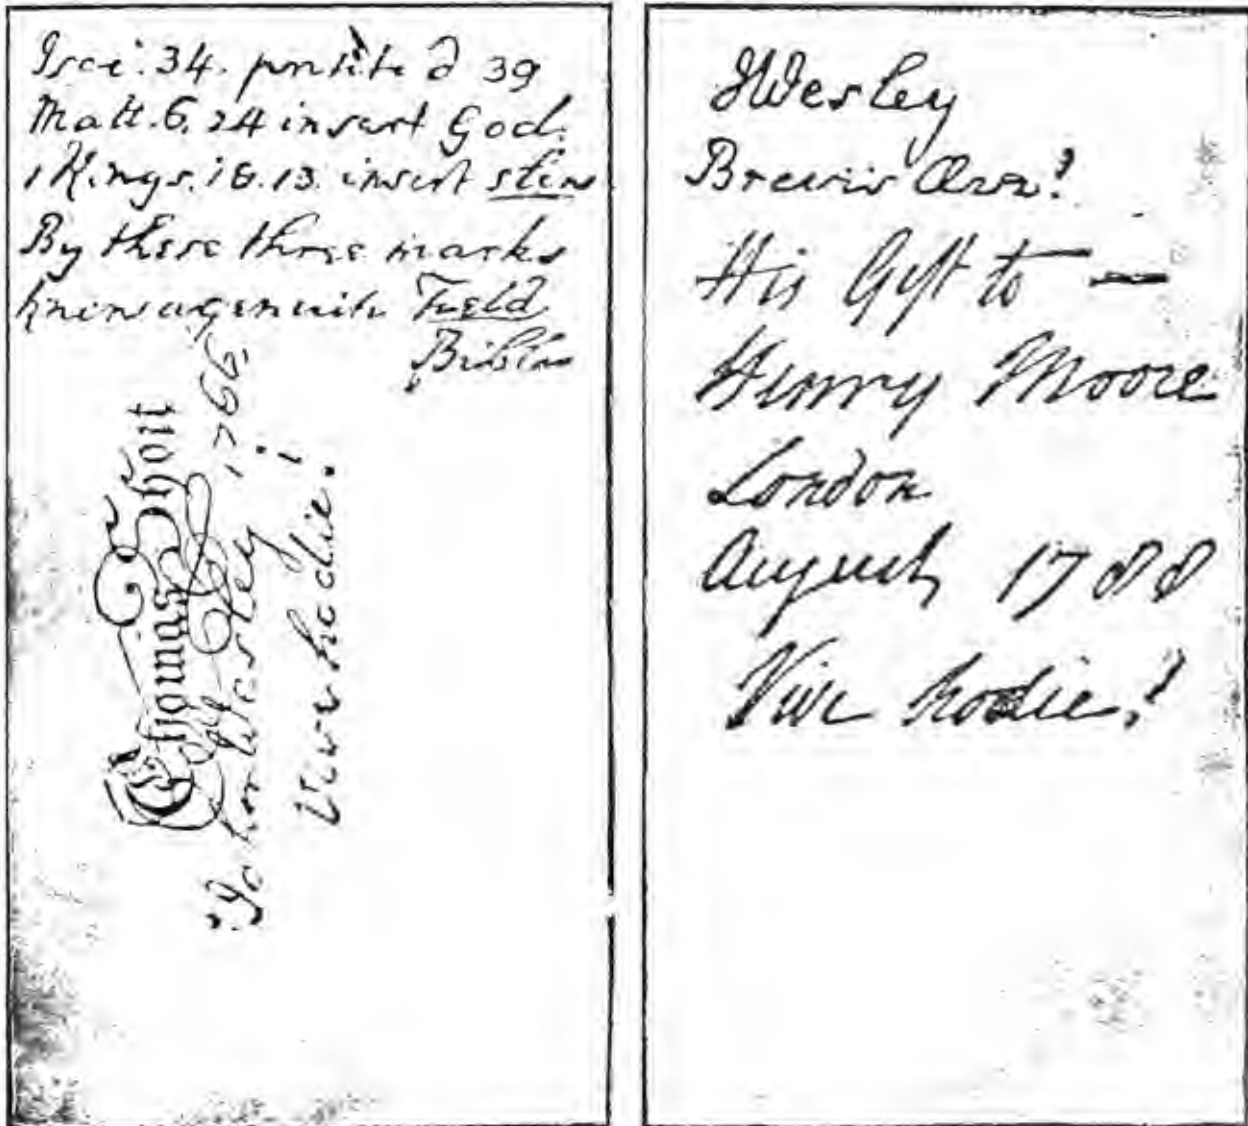 Isai. 34. printed 39
Matt. 6. 24 insert God.
1 Kings. 18. 13. insert slew
By these three marks
know a genuin Field
Bible
Thomas Thoit
John Wesley 1766.
Vive hodie!
JWesley
Brevis Ævi!
His Gift to —
Henry Moore
London
August 1788
Vive hodie!